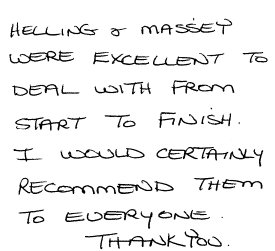 HELLING & MASSEY
WERE EXCELLENT TO
DEAL WITH FROM
START TO FINISH.
I WOULD CERTAINLY
RECOMMEND THEM
TO EVERYONE.
THANKYOU.